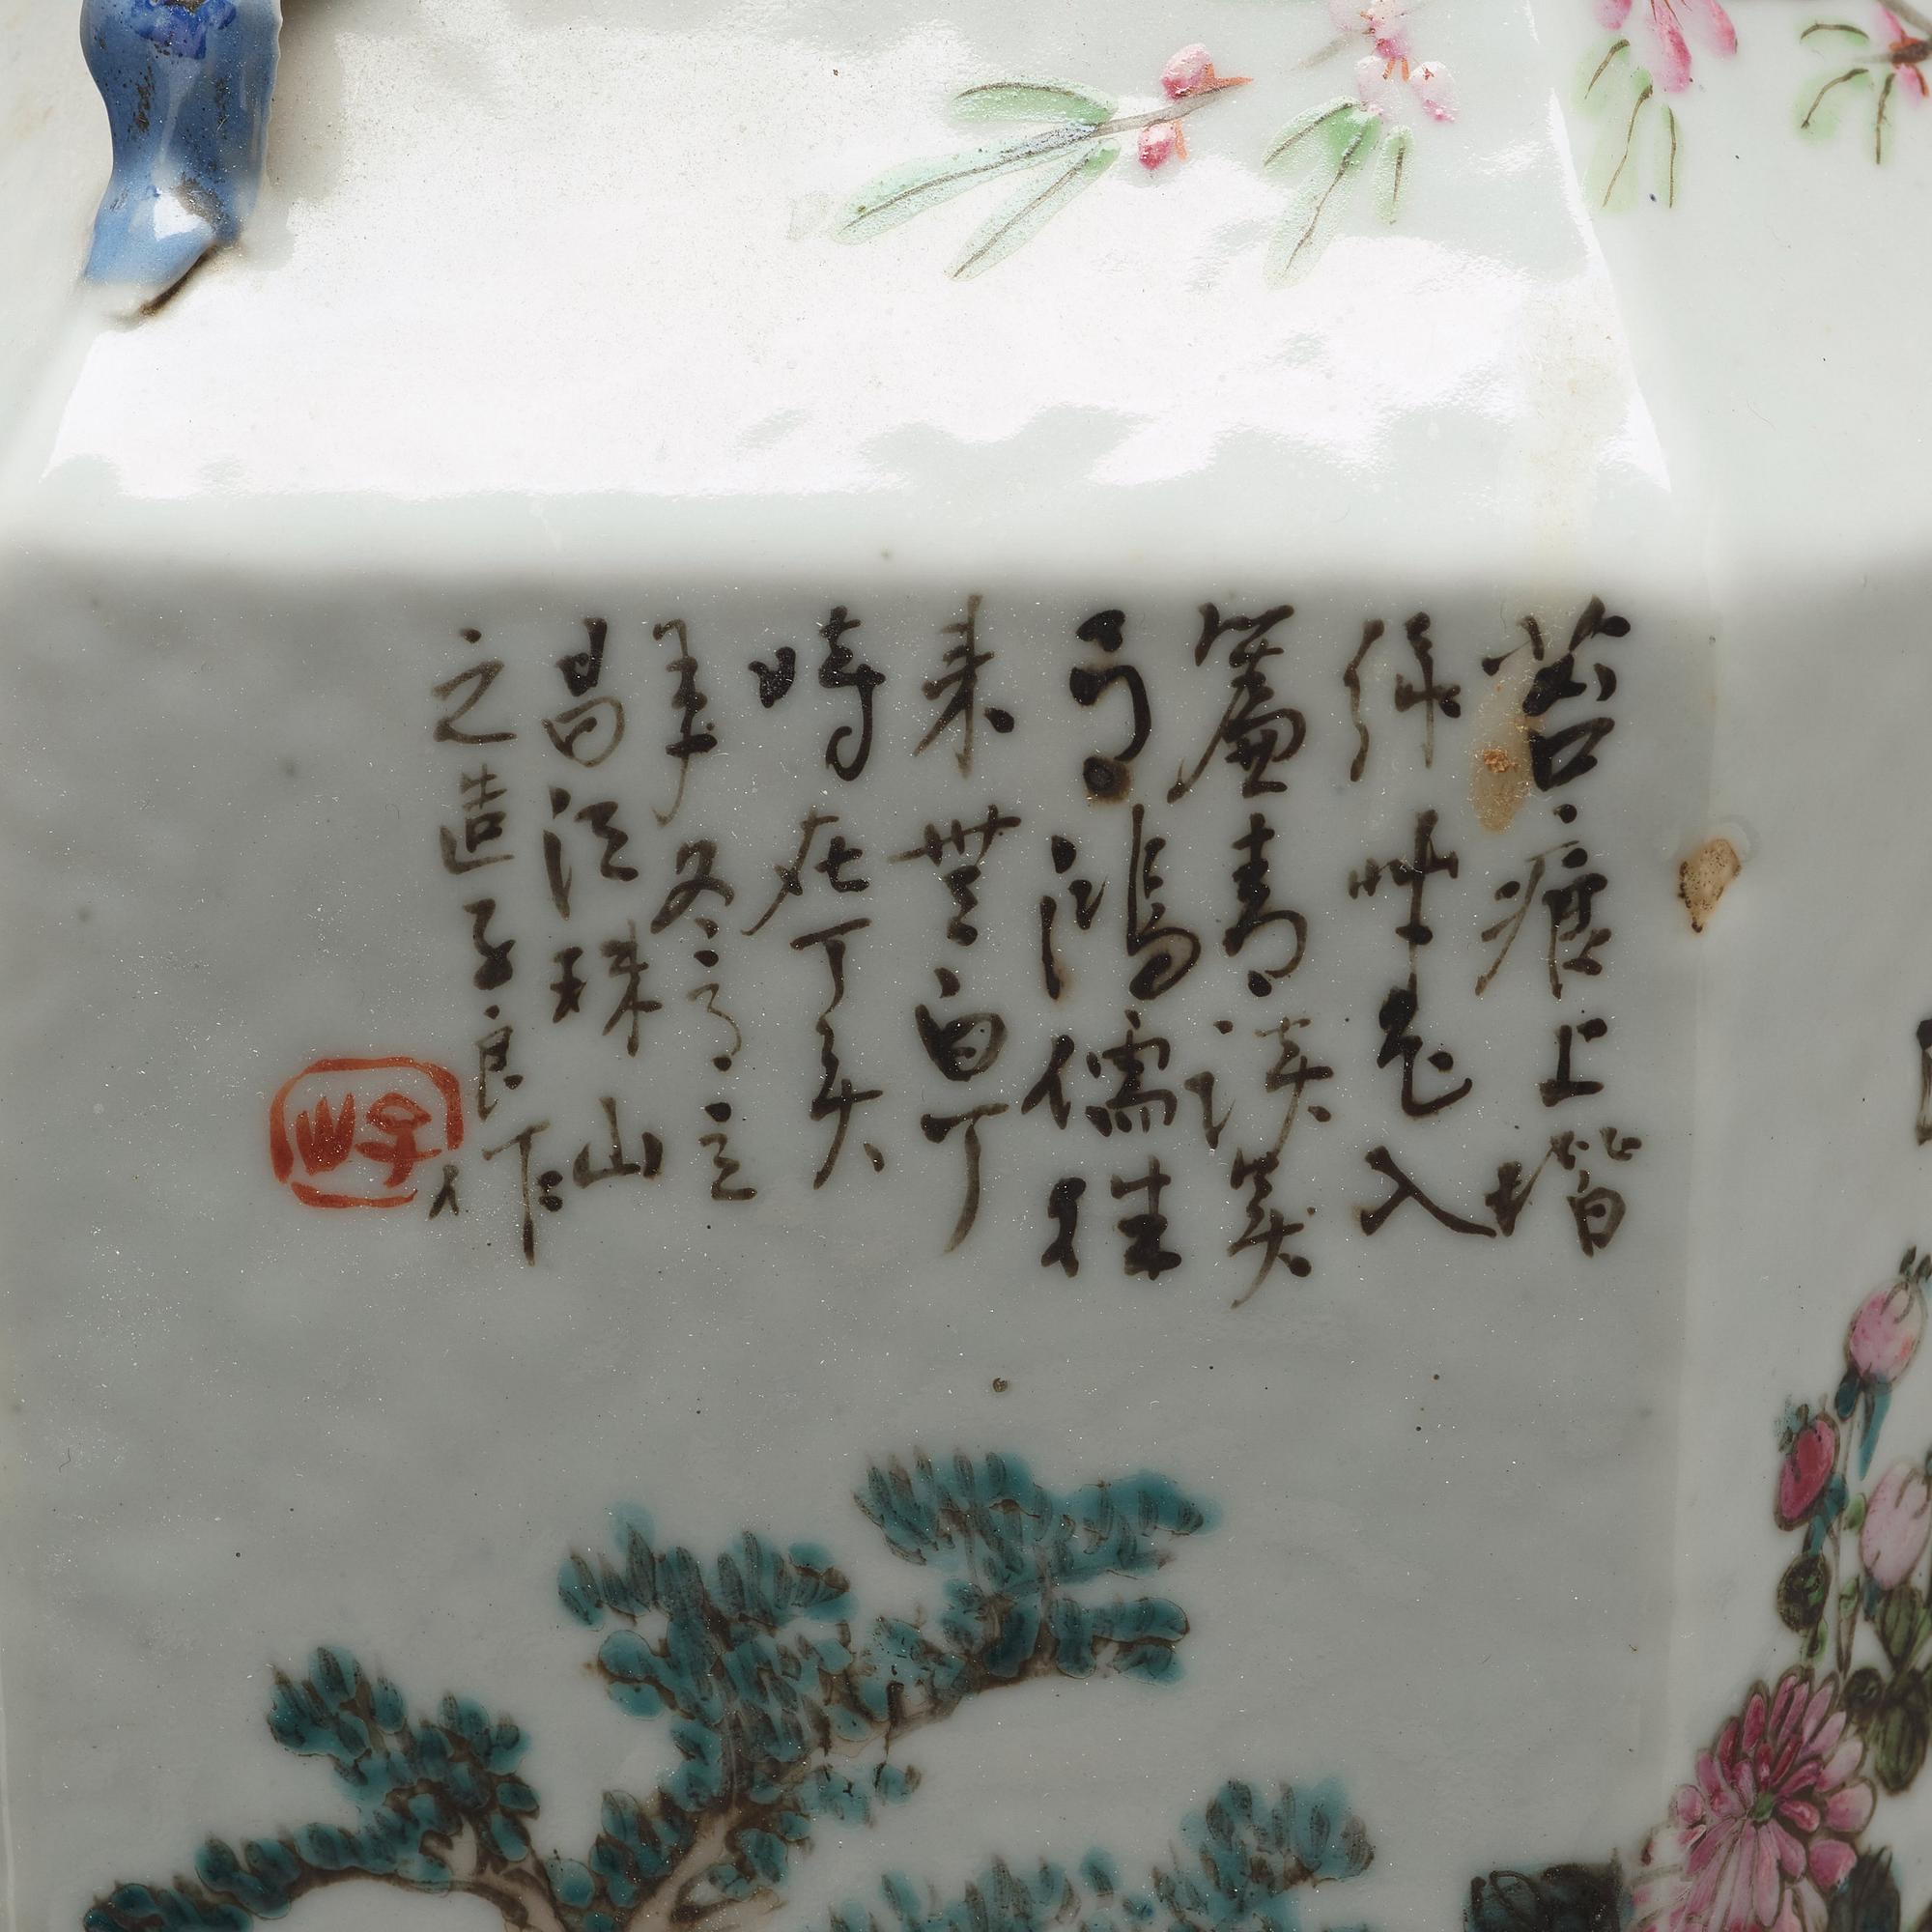 苔痕上堦
綠草色入
簾青談笑
有鴻儒往
来無白丁
時在丁亥
年冬月立
昌江珠山
之造子良作